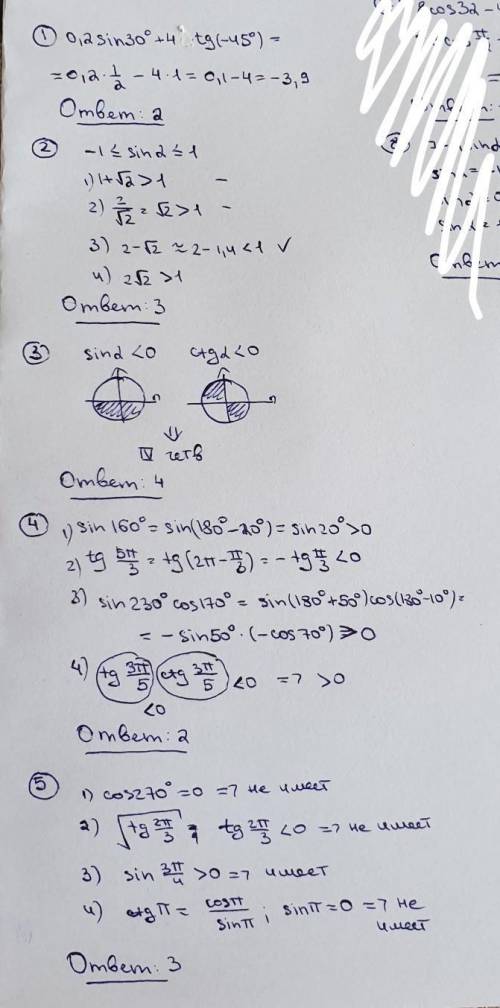 ① 0,2sin30° + 4 tg(-45°) =
= 0,2 · 1/2 - 4 · 1 = 0,1 - 4 = -3,9
Ответ: 2
② -1 ≤ sinα ≤ 1
1) 1+√2 > 1 -
2) 2/√2 = √2 > 1 -
3) 2-√2 ≈ 2-1,4 < 1 ✓
4) 2√2 > 1
Ответ: 3
③ sinα < 0 ctgα < 0
⇓
IV четв
Ответ: 4
④ 1) sin 160° = sin(180° - 20°) = sin20° > 0
2) tg 5π/3 = tg(2π - π/3) = - tg π/3 < 0
3) sin 230° cos170° = sin(180°+50°)cos(180°-10°) =
= - sin50° · (-cos70°) > 0
4) tg 3π/5 ctg 3π/5 < 0 => > 0
< 0
Ответ: 2
⑤ 1) cos270° = 0 => не имеет
2) √tg 2π/3 ; tg 2π/3 < 0 => не имеет
3) sin 3π/4 > 0 => имеет
4) ctg π = cosπ/sinπ ; sinπ = 0 => не
имеет
Ответ: 3